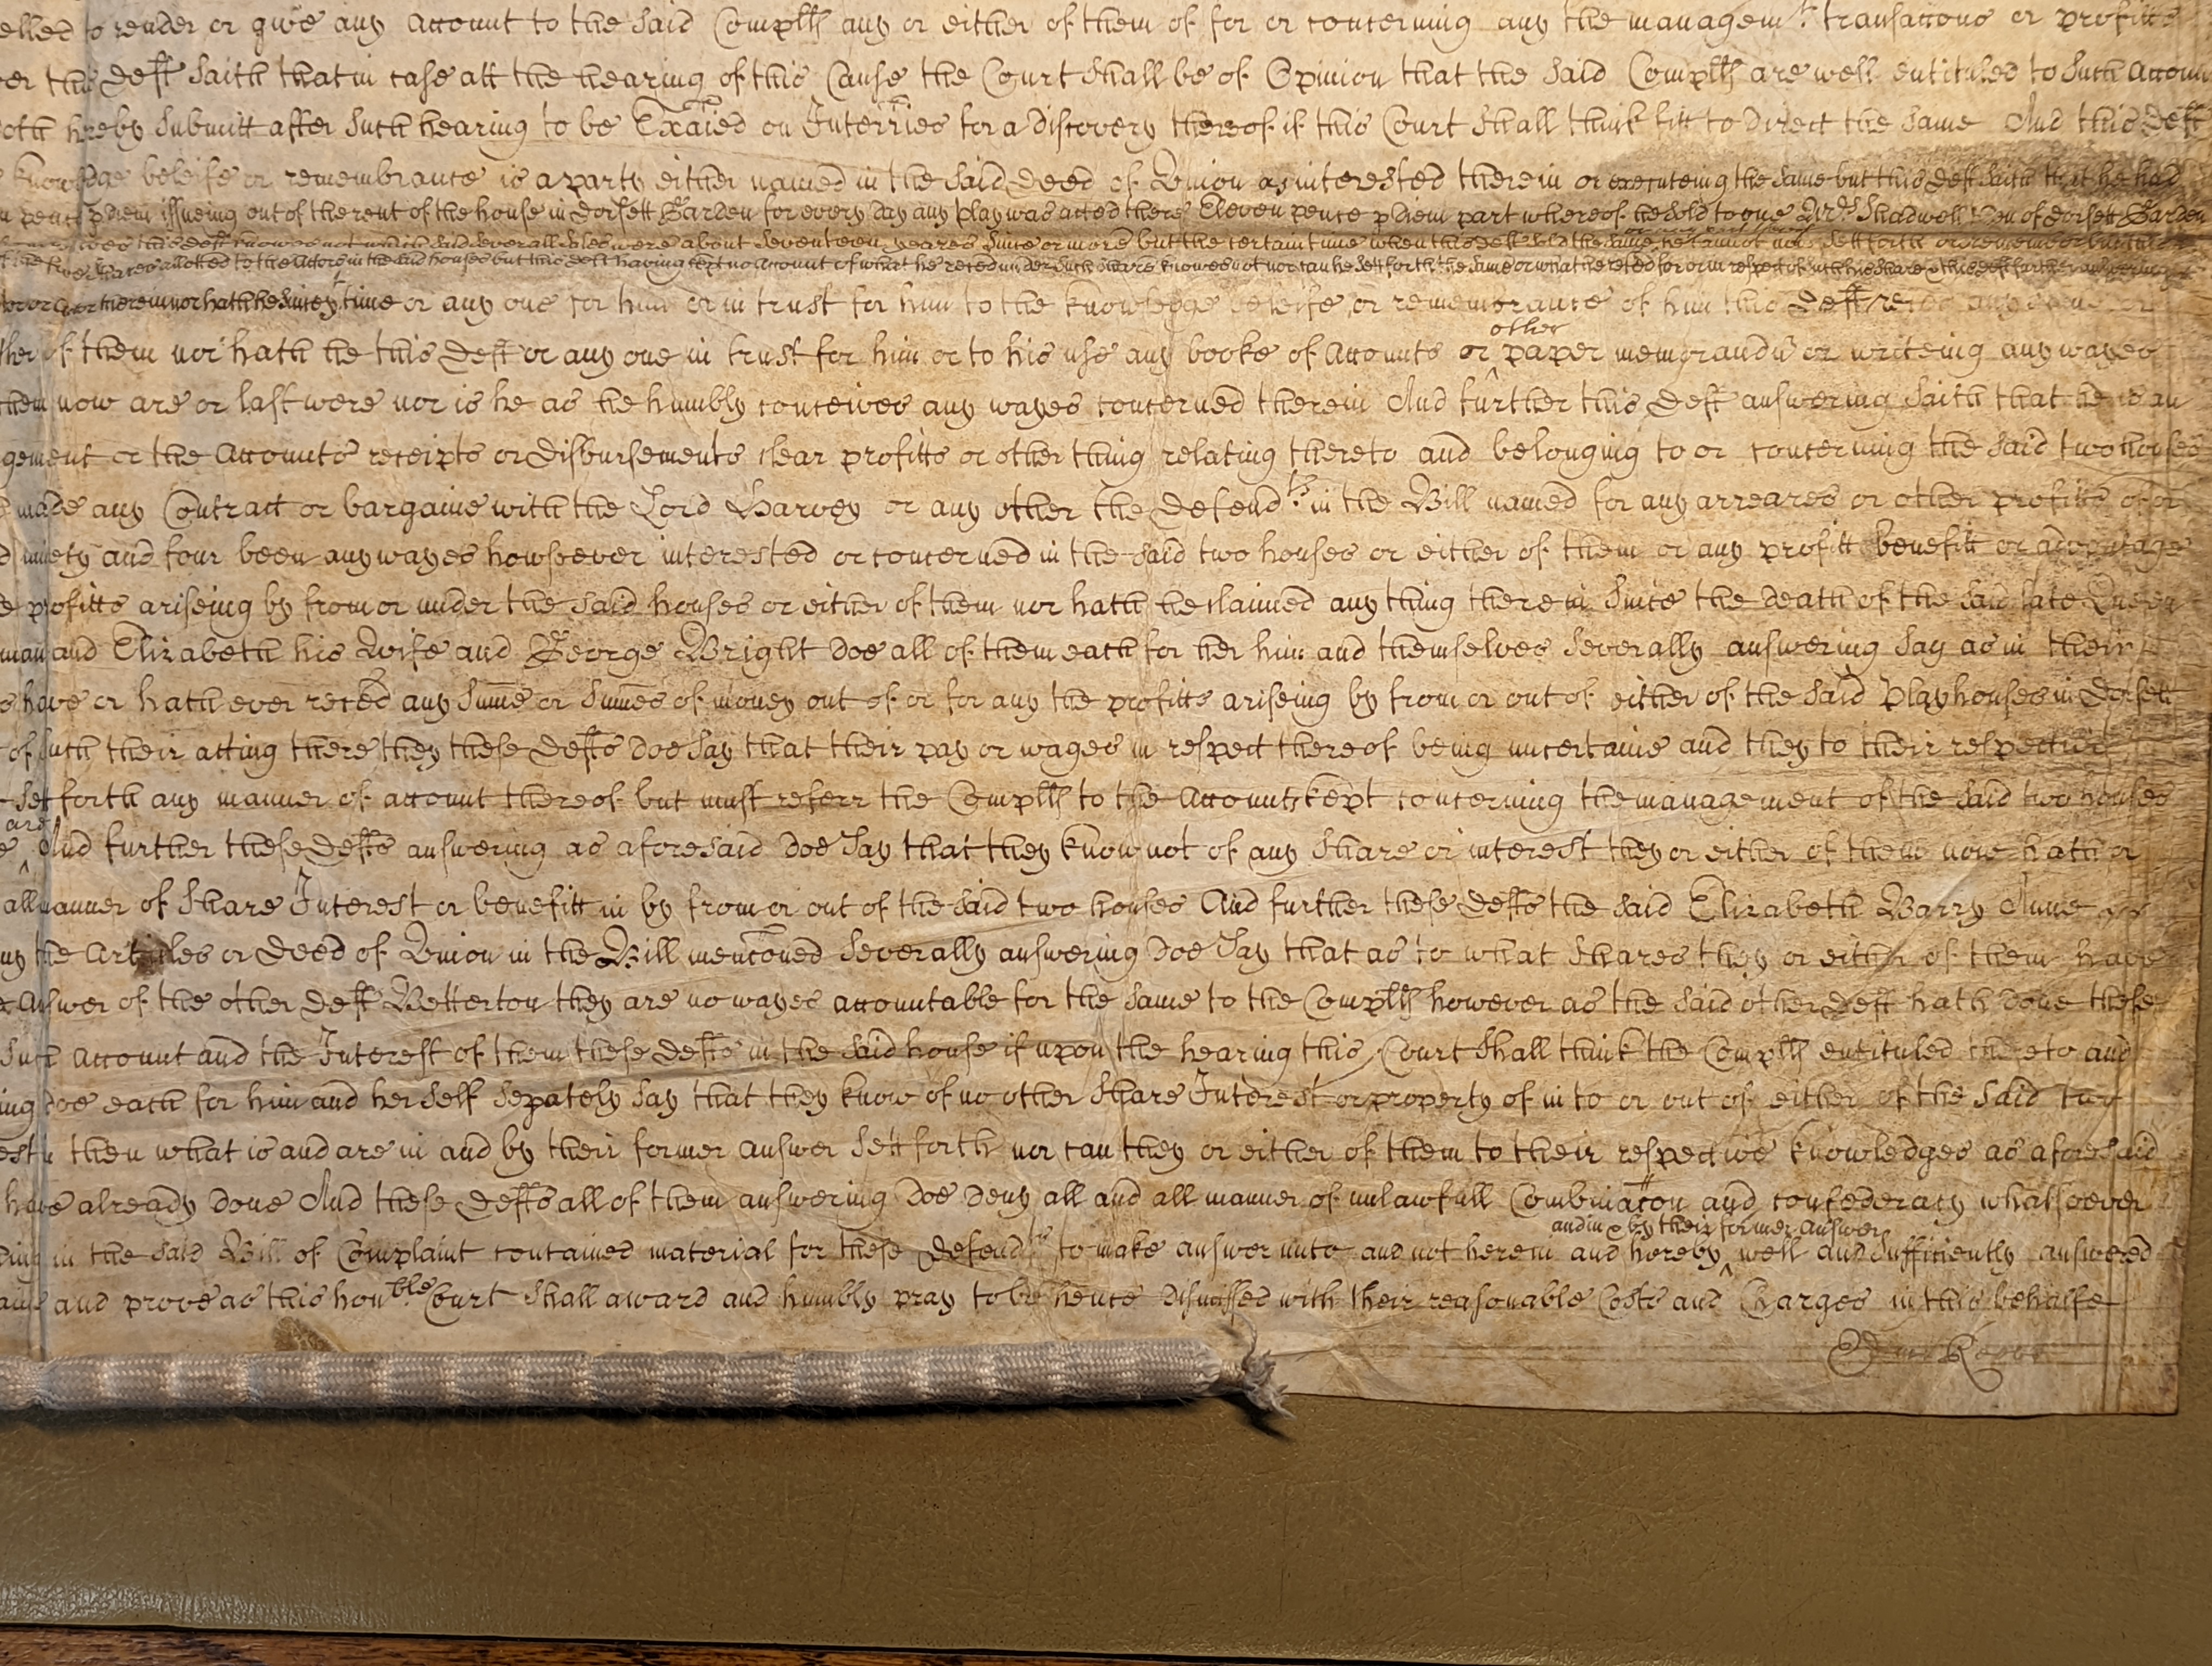 elled to render or give any Account to the said Complts any or either of them of for or concerning any the managemt. transaccons or profitts
er this Defft saith that in case att the hearing of this Cause the Court shall be of Opinion that the said Complts are well entituled to such Accou
oth hereby submitt after such hearing to be Exaied on Interries for a discovery thereof if this Court shall think fitt to direct the same And this Deft
knowledge beleife or remembrance is a party either named in the said Deed of Union as interested therein or executeing the same but this Deft saith that he had
pence p diem issueing out of the rent of the house in Dorsett Garden for every day any play was acted there Eleven pence p Diem part whereof he sold to one Mrs. Shadwell of Dorsett Garden
this Deft knowes not which said severall sales were about seventeen yeares since or more but the certain time when this Deft sold the same he cannot now sett forth or remember
shares allotted to the Actors in the said houses but this Deft having kept no account of what he reced under such shares knowes not nor can he sett forth the same or what he reced for or in respect of such his share & this Deft further answering
therein nor hath he since yt time or any one for him or in trust for him to the knowledge beleife or remembrance of him this Deft
her of them nor hath he this Deft or any one in trust for him or to his use any booke of Accounts or other paper memorandu or writeing any wayes
them now are or last were nor is he as he humbly conceives any wayes concerned therein And further this Deft answering saith that he is an
gement or the Accounts receipts or disbursements clear profitts or other thing relating thereto and belonging to or concerning the said two houses
made any Contract or bargaine with the Lord Harvey or any other the Defendts. in the Bill named for any arreares or other profitts of or
ninety and four been any wayes howsoever interested or concerned in the said two houses or either of them or any profitt benefitt or advantage
profitts ariseing by from or under the said houses or either of them nor hath he claimed any thing therein since the death of the said late Queen
man and Elizabeth his Wife and George Bright doe all of them each for her him and themselves severally answering say as in their
have or hath ever reced any sume or sumes of money out of or for any the profitts ariseing by from or out of either of the said Playhouses in Dorsett
of such their acting there they these Defts doe say that their pay or wages in respect thereof being uncertaine and they to their respective
set forth any manner of account thereof but must referr the Complts to the Accounts kept concerning the management of the said two houses
are And further these Defts answering as aforesaid doe say that they know not of any share or interest they or either of them now hath or
all manner of share Interest or benefitt in by from or out of the said two houses And further these Defts the said Elizabeth Barry Anne
the Articles or Deed of Union in the Bill menconed severally answering doe say that as to what shares they or either of them have
Answer of the other Deft Betterton they are no wayes accountable for the same to the Complts however as the said other Deft hath done these
such account and the Interest of them these Defts in the said house if upon the hearing this Court shall think the Complts entituled thereto and
ing doe each for him and her self sepately say that they know of no other share Interest or property of in to or out of either of the said two
then what is and are in and by their former answer sett forth nor can they or either of them to their respective knowledges as aforesaid
have already done And these Defts all of them answering doe deny all and all manner of unlawfull Combinacon and confederacy whatsoever
in the said Bill of Complaint contained material for these Defendts to make answer unto and not herein and hereby and in & by their former answer well and sufficiently answered
and prove as this honble Court shall award and humbly pray to be hence dismissed with their reasonable Costs and Charges in this behalfe